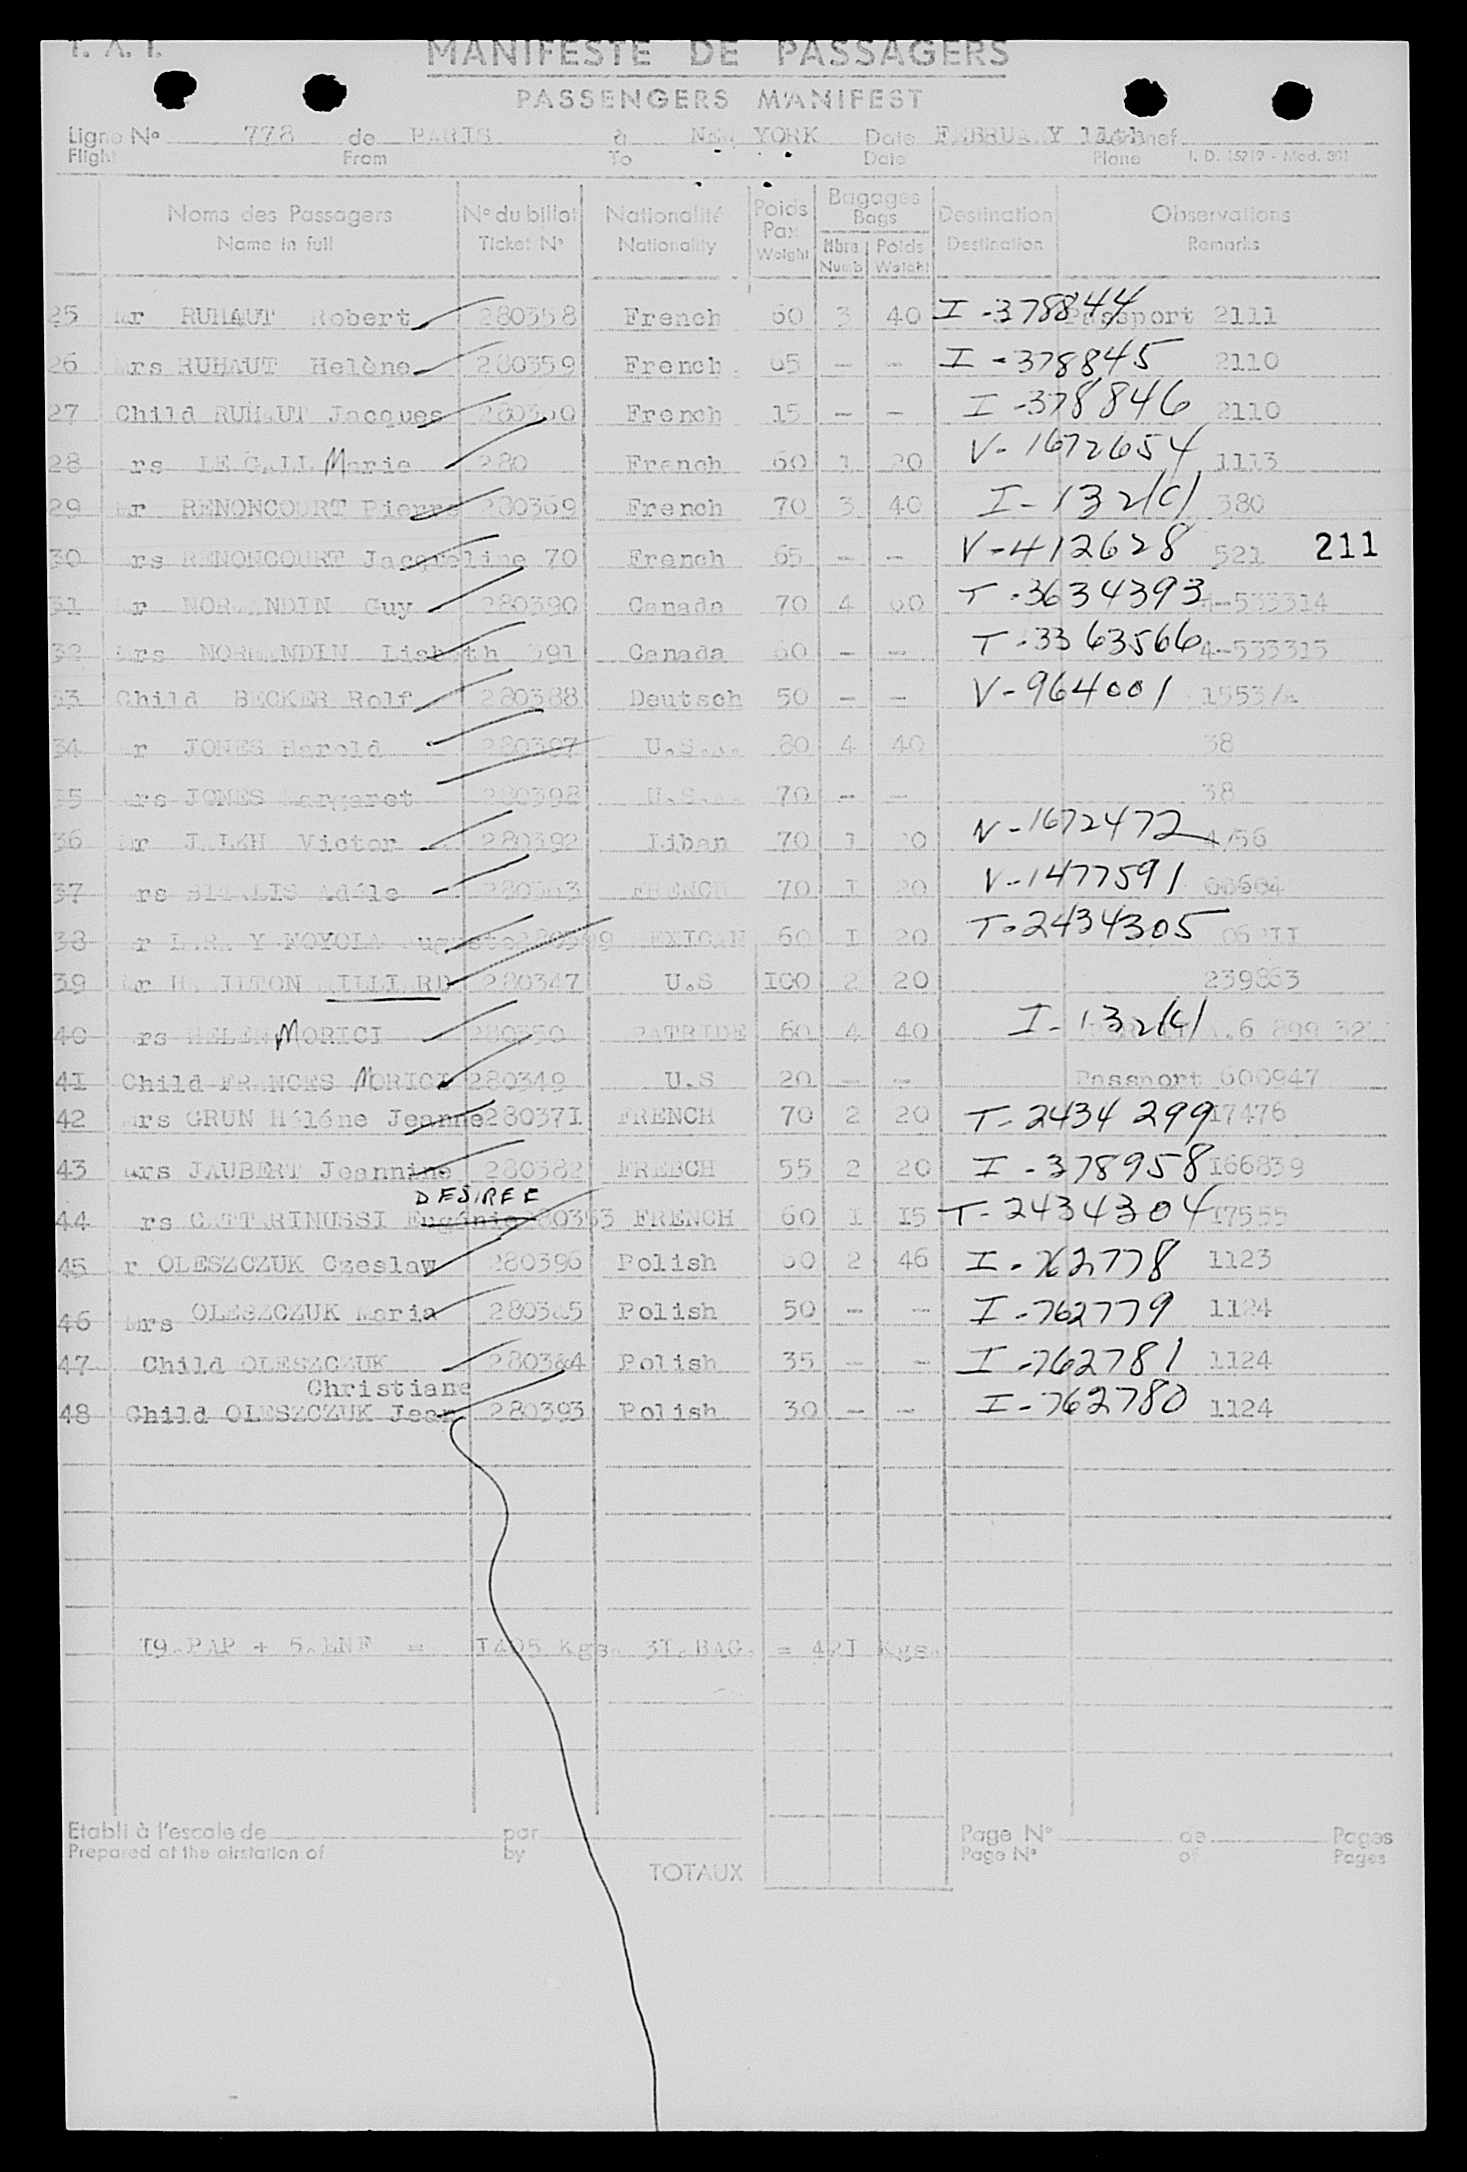 T. A. I.
MANIFESTE DE PASSAGERS
PASSENGERS MANIFEST
Ligne No 778 de PARIS à NEW YORK Date FEBRUARY 11th
Flight From To Date Plane I. D. 15219 - Mod. 301
Noms des Passagers No du billet Nationalité Poids Pax Bagages Destination Observations
Name in full Ticket No Nationality Weight Bags Nbre Numb Poids Weight Destination Remarks
25 Mr RUHAUT Robert 280358 French 60 3 40 I-378844 Passport 2111
26 Mrs RUHAUT Helène 280359 French 65 - - I-378845 2110
27 Child RUHAUT Jacques French 15 - - I-378846 2110
28 rs LE GALL Marie 280 French 60 1 20 V-1672654 1113
29 Mr RENONCOURT Pierre 280369 French 70 3 40 I-132(C) 380
30 rs RENONCOURT Jacqueline 70 French 65 - - V-412628 521 211
31 Mr NORMANDIN Guy 280390 Canada 70 4 60 T-3634393 4-533314
32 Mrs NORMANDIN Lisbeth 391 Canada 60 - - T-3363566 4-533315
33 Child BECKER Rolf 280388 Deutsch 50 - - V-964001 1553/
34 Mr JONES Harold 280397 U.S.A. 80 4 40 38
35 Mrs JONES Margaret 280398 U.S.A. 70 - - 38
36 Mr Victor 280392 Liban 70 1 20 V-1672472 4756
37 rs Adèle FRENCH 70 I 20 V-1477591
38 r Y Auguste MEXICAN 60 I 20 T-2434305
39 Mr HAMILTON MILLIARD 280347 U.S ICO 2 20 239863
40 rs HELEN MORICI 280350 PATRIDE 60 4 40 I-132(C)
41 Child FRANCES MORICI 280349 U.S 20 - - Passport 600947
42 Mrs GRUN Héléne Jeanne 280371 FRENCH 70 2 20 T-2434299 I7476
43 Mrs JAUBERT Jeannine 280382 FREBCH 55 2 20 I-378958 I66839
DESIREE
44 rs CATTARINUSSI Eugénie FRENCH 60 I I5 T-2434304 I7555
45 r OLESZCZUK Czeslaw 280396 Polish 60 2 46 I-762778 1123
46 Mrs OLESZCZUK Maria Polish 50 - - I-762779 1124
47 Child OLESZCZUK Polish 35 - - I-762781 1124
Christiane
48 Child OLESZCZUK Jean 280393 Polish 30 - - I-762780 1124
I9.PAP + 5.ENF = I405 Kgs. 3I.BAG. = 42I Kgs.
Etabli à l'escale de par Page No de Pages
Prepared at the airstation of by Page No of Pages
TOTAUX